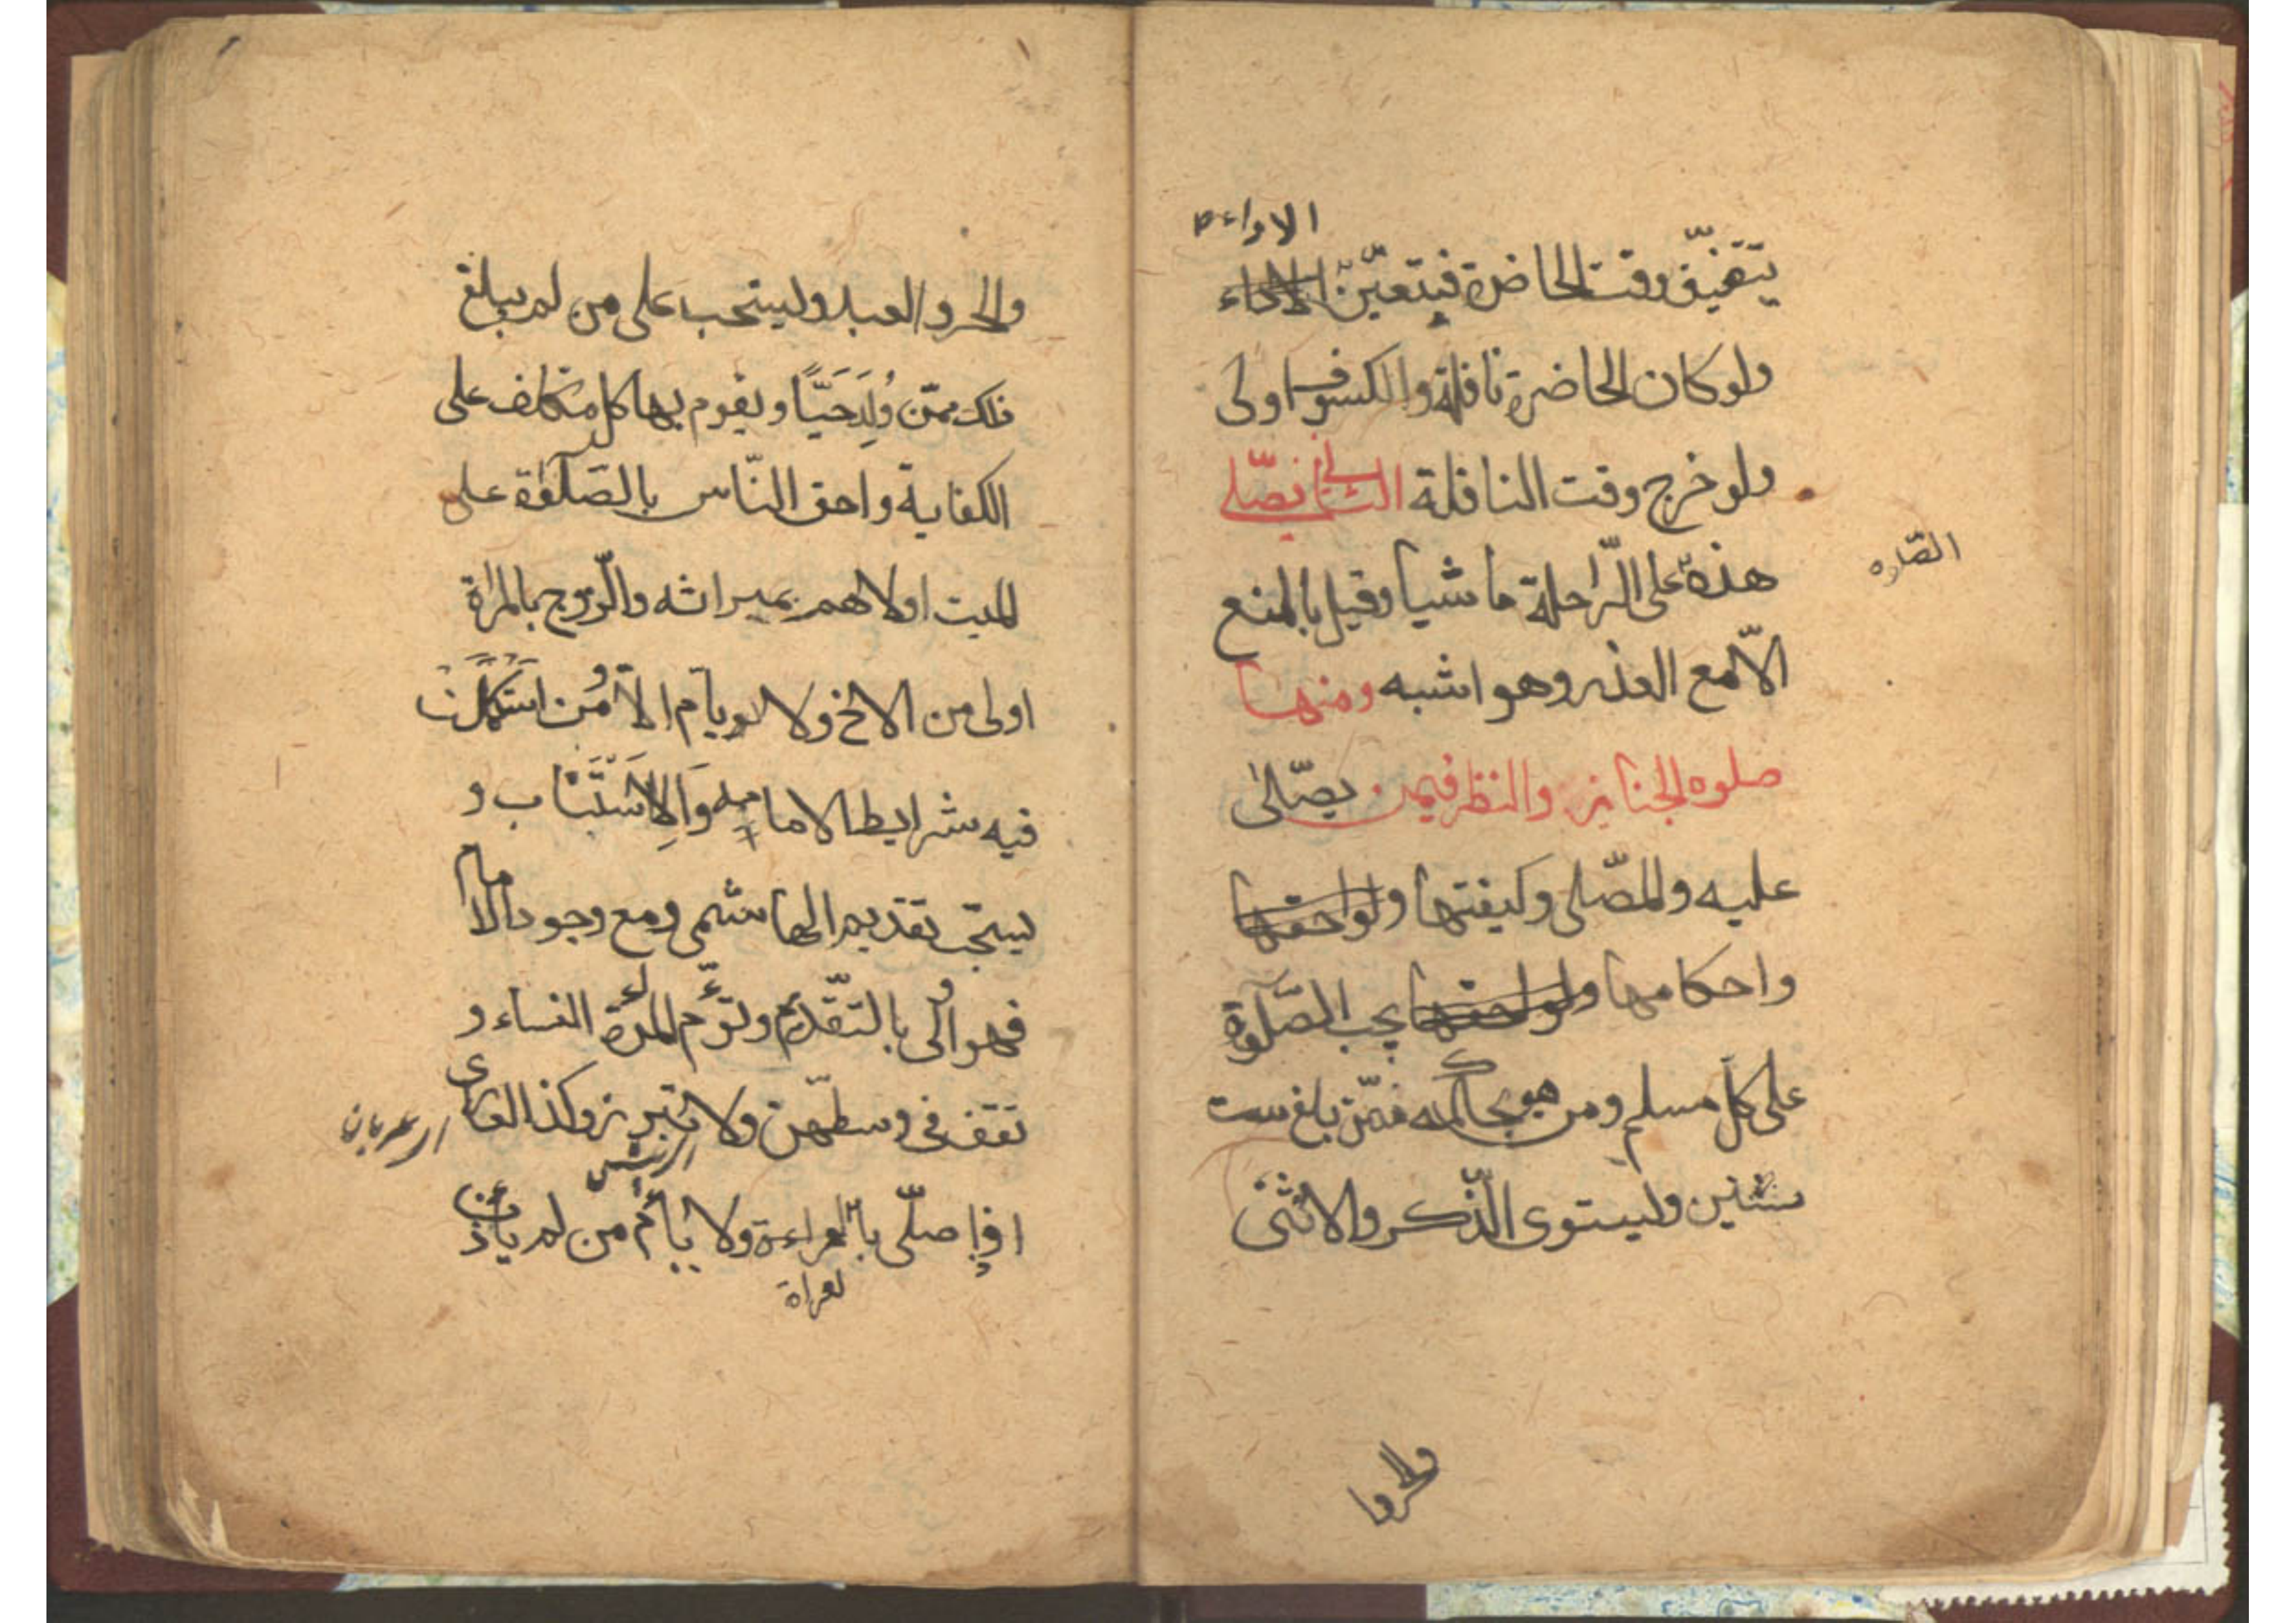 الاداء
يتضيّق وقت الحاضرة فيتعيّن الاداء
ولو كان الحاضرة نافلة والكسوف اولى
ولو خرج وقت النافلة الثانى يصّلى
هذه على الرّاحلة ماشيا وقيل بالمنع
الصّلوه
الاّ مع العذر وهو اشبه ومنها
صلوه الجنايز والنظر فيمن يصّلىٰ
عليه والمصّلى وكيفتها ولواحقها
واحكامها ولواحقها يجب الصّلوٰة
على كلّ مسلم ومن هو بحكمه ممّن بلغ ست
سنين وليستوى الّذكر والانثى
والحر وا
والحر والعبد وليستحب على من لم يبلغ
ذلك ممّن وُلِدَ حَيّاً ويقوم بها كل مكلف على
الكفاية واحق النّاس بالصّلوٰة على
الميت اولاهم بميراثه والّزوج بالمراة
اولى من الاخ ولا يوم الاّ من استكملت
فيه شرايط الامامه وَالاِستنَاب و
يستحّب تقديم الهاشمى ومع وجود الامام
فهو اولى بالتّقدّم وتؤّم المرءة النساء و
تقف فى وسطهّن ولا تبرز وكذا العارى
اذا صلّى بالعراءة ولا يأم من لم يأذن
لعراة